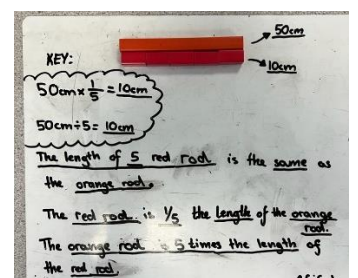 50cm
KEY:
10cm
50cm × 1/5 = 10cm
50cm ÷ 5 = 10cm
The length of 5 red rod is the same as
the orange rod.
The red rod is 1/5 the length of the orange
rod.
The orange rod 5 times the length of
the red rod.